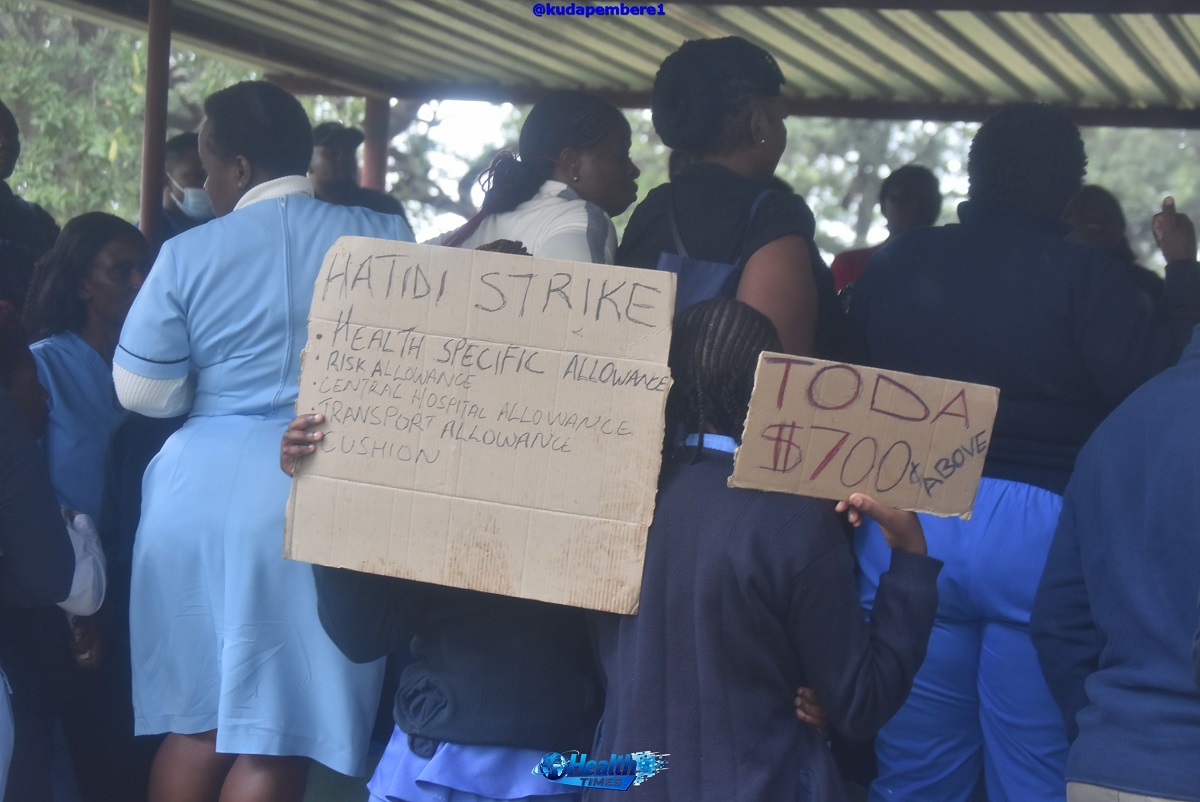 @kudapembere1
HATIDI STRIKE
• HEALTH SPECIFIC ALLOWANCE
• RISK ALLOWANCE
• CENTRAL HOSPITAL ALLOWANCE
• TRANSPORT ALLOWANCE
• CUSHION
TODA
$700 & ABOVE
Health
TIMES